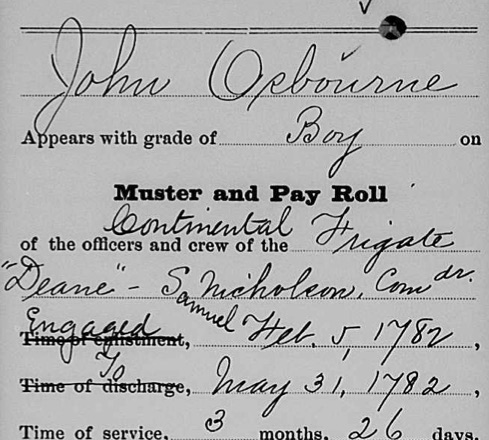 John Osbourne
Appears with grade of Boy on
Muster and Pay Roll
Continental
of the officers and crew of the Frigate
"Deane" - S. Nicholson, Comdr.
Samuel
Engaged
Time of enlistment, Feb. 5, 1782,
To
Time of discharge, May 31, 1782,
Time of service, 3 months, 26 days.